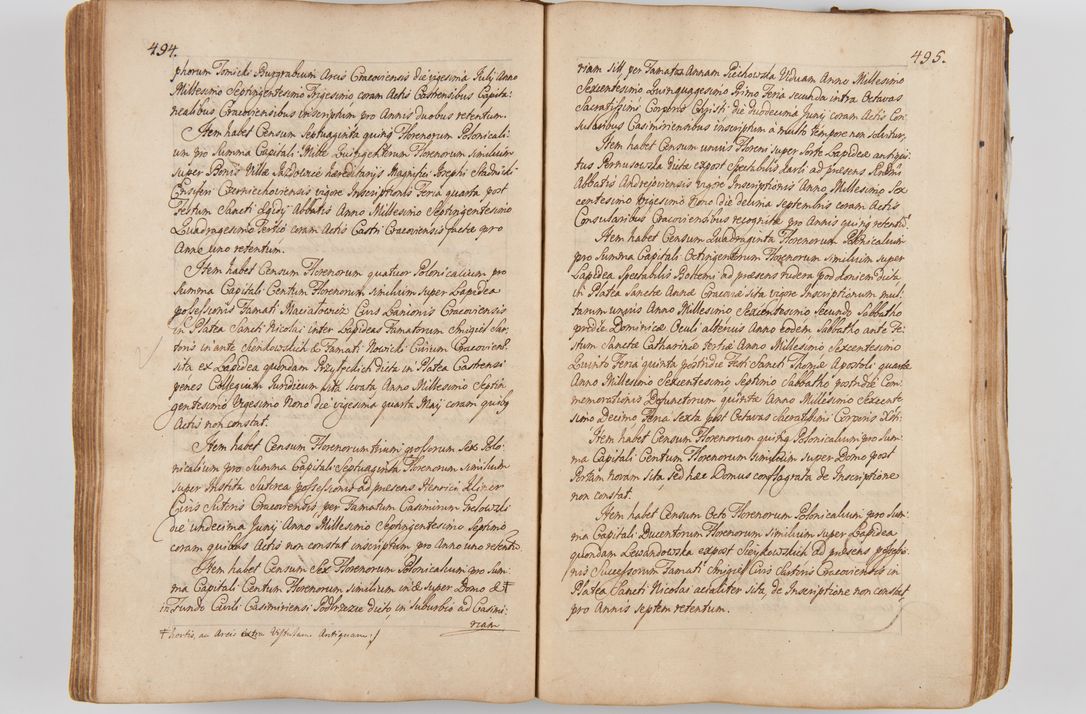 494.
phorum Tomicki Burgrabium Arcis Cracoviensis die vigesima Julij Anno
Millesimo Septingentesimo Trigesimo, coram Actis Castrensibus Capita-
nealibus Cracoviensibus inscriptum pro Annis duobus retentum.
Item habet Censum Septuaginta quinq Florenorum Polonicali-
um pro Summa Capitali Mille Quingentorum Florenorum similium
super Bonis Villæ hæreditarijs Magnifici Josephi Stadnicki
Ensiferi Czerniechoviensis vigore Inscriptionis Feria quarta post
Festum Sancti Egidij Abbatis Anno Millesimo Septingentesimo
Quadragesimo Tertio coram Actis Castri Cracoviensis factæ pro
Anno uno retentum.
Item habet Censum Florenorum quatuor Polonicalium pro
Summa Capitali Centum Florenorum similium super Lapidea
possessionis Famati Civis Lanionis Cracoviensis
in Platea Sancti Nicolai inter Lapideas Famatorum Smigiel Sar-
toris in ante Sienkowskich & Famati Nowicki Civium Cracovien
sita ex Lapidea quondam dicta in Platea Castrensi
penes Collegium Juridicum sita levata Anno Millesimo Septin
gentesimo Vigesimo Nono die vigesima quarta Maij coram quibq
Actis non constat.
Item habet Censum Florenorum trium grossorum Sex Polo-
nicalium pro Summa Capitali Septuaginta Florenorum similium
super Instita Sutorea possessionis ad præsens Henrici
Civis Sutoris Cracoviensis, per Famatum Casimirum
die undecima Junij Anno Millesimo Septingentesimo Septimo
coram quibus Actis non constat inscriptum pro Anno uno retento.
Item habet Censum Sex Florenorum Polonicalium pro Sum-
ma Capitali Centum Florenorum similium in & super Domo &
in Fundo Civili Casimiriensi dicto, in Suburbio ad Casimi-
riam
hortis, ac Arcis extra Vistulam Antiquam
495.
riam sitâ, per Famatam Annam Piechowska Viduam Anno Millesimo
Sexcentesimo Quinquagesimo Primo Feria secunda intra Octavas
Sacratissimi Corporis Christi die duodecima Junij coram Actis Con-
sularibus Casimiriensibus inscriptum a multo tempore non solvitur.
Item habet Censum unius Floreni super Sorte Lapideæ antiqui-
tus Pernuserska dicta expost Spectabilis Carli ad præsens
Abbatis Andrejoviensis vigore Inscriptionis Anno Millesimo Sex
centesimo Vigesimo Nono die decima Septembris coram Actis
Consularibus Cracoviensibus recognitæ pro Annis quinq
Item habet Censum Quadraginta Florenorum Polonicalium
pro Summa Capitali Octingentorum Florenorum similium super
Lapidea Spectabilis Bohemi ad præsens rudera dicta
in Platea Sanctæ Annæ Cracoviæ sita vigore Inscriptionum mul-
tarum unius Anno Millesimo Sexcentesimo Secundo Sabbatho
pridie Dominicæ Oculi alterius Anno eodem Sabbatho ante Fe-
stum Sanctæ Catharinæ tertiæ Anno Millesimo Sexcentesimo
Quinto Feria quinta postridie Festi Sancti Thomæ Apostoli quarta
Anno Millesimo Sexcentesimo Septimo Sabbatho postridie Com-
memorationis Defunctorum quintæ Anno Millesimo Sexcente
simo Decimo Feria Sexta post Octavas Sacratissimi Corporis Xsti.
Item habet Censum Florenorum quinq Polonicalium pro Sum-
ma Capitali Centum Florenorum similium super Domo post
Portam novam sita, sed hæc Domus conflagrata de Inscriptione
non constat.
Item habet Censum Octo Florenorum Polonicalium pro Sum-
ma Capitali Ducentorum Florenorum similium super Lapidea
quondam Lewandowska expost Sienkowskich ad præsens possessio-
nis Successorum Famati Smigiel Civis Sartoris Cracoviensis in
Platea Sancti Nicolai acialiter sita, de Inscriptione non constat
pro Annis septem retentum.